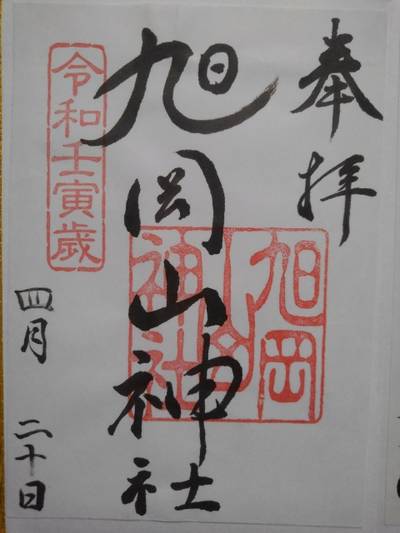 奉拝
旭岡山神社
旭岡
山
神社
令和壬寅歳
四月 二十日